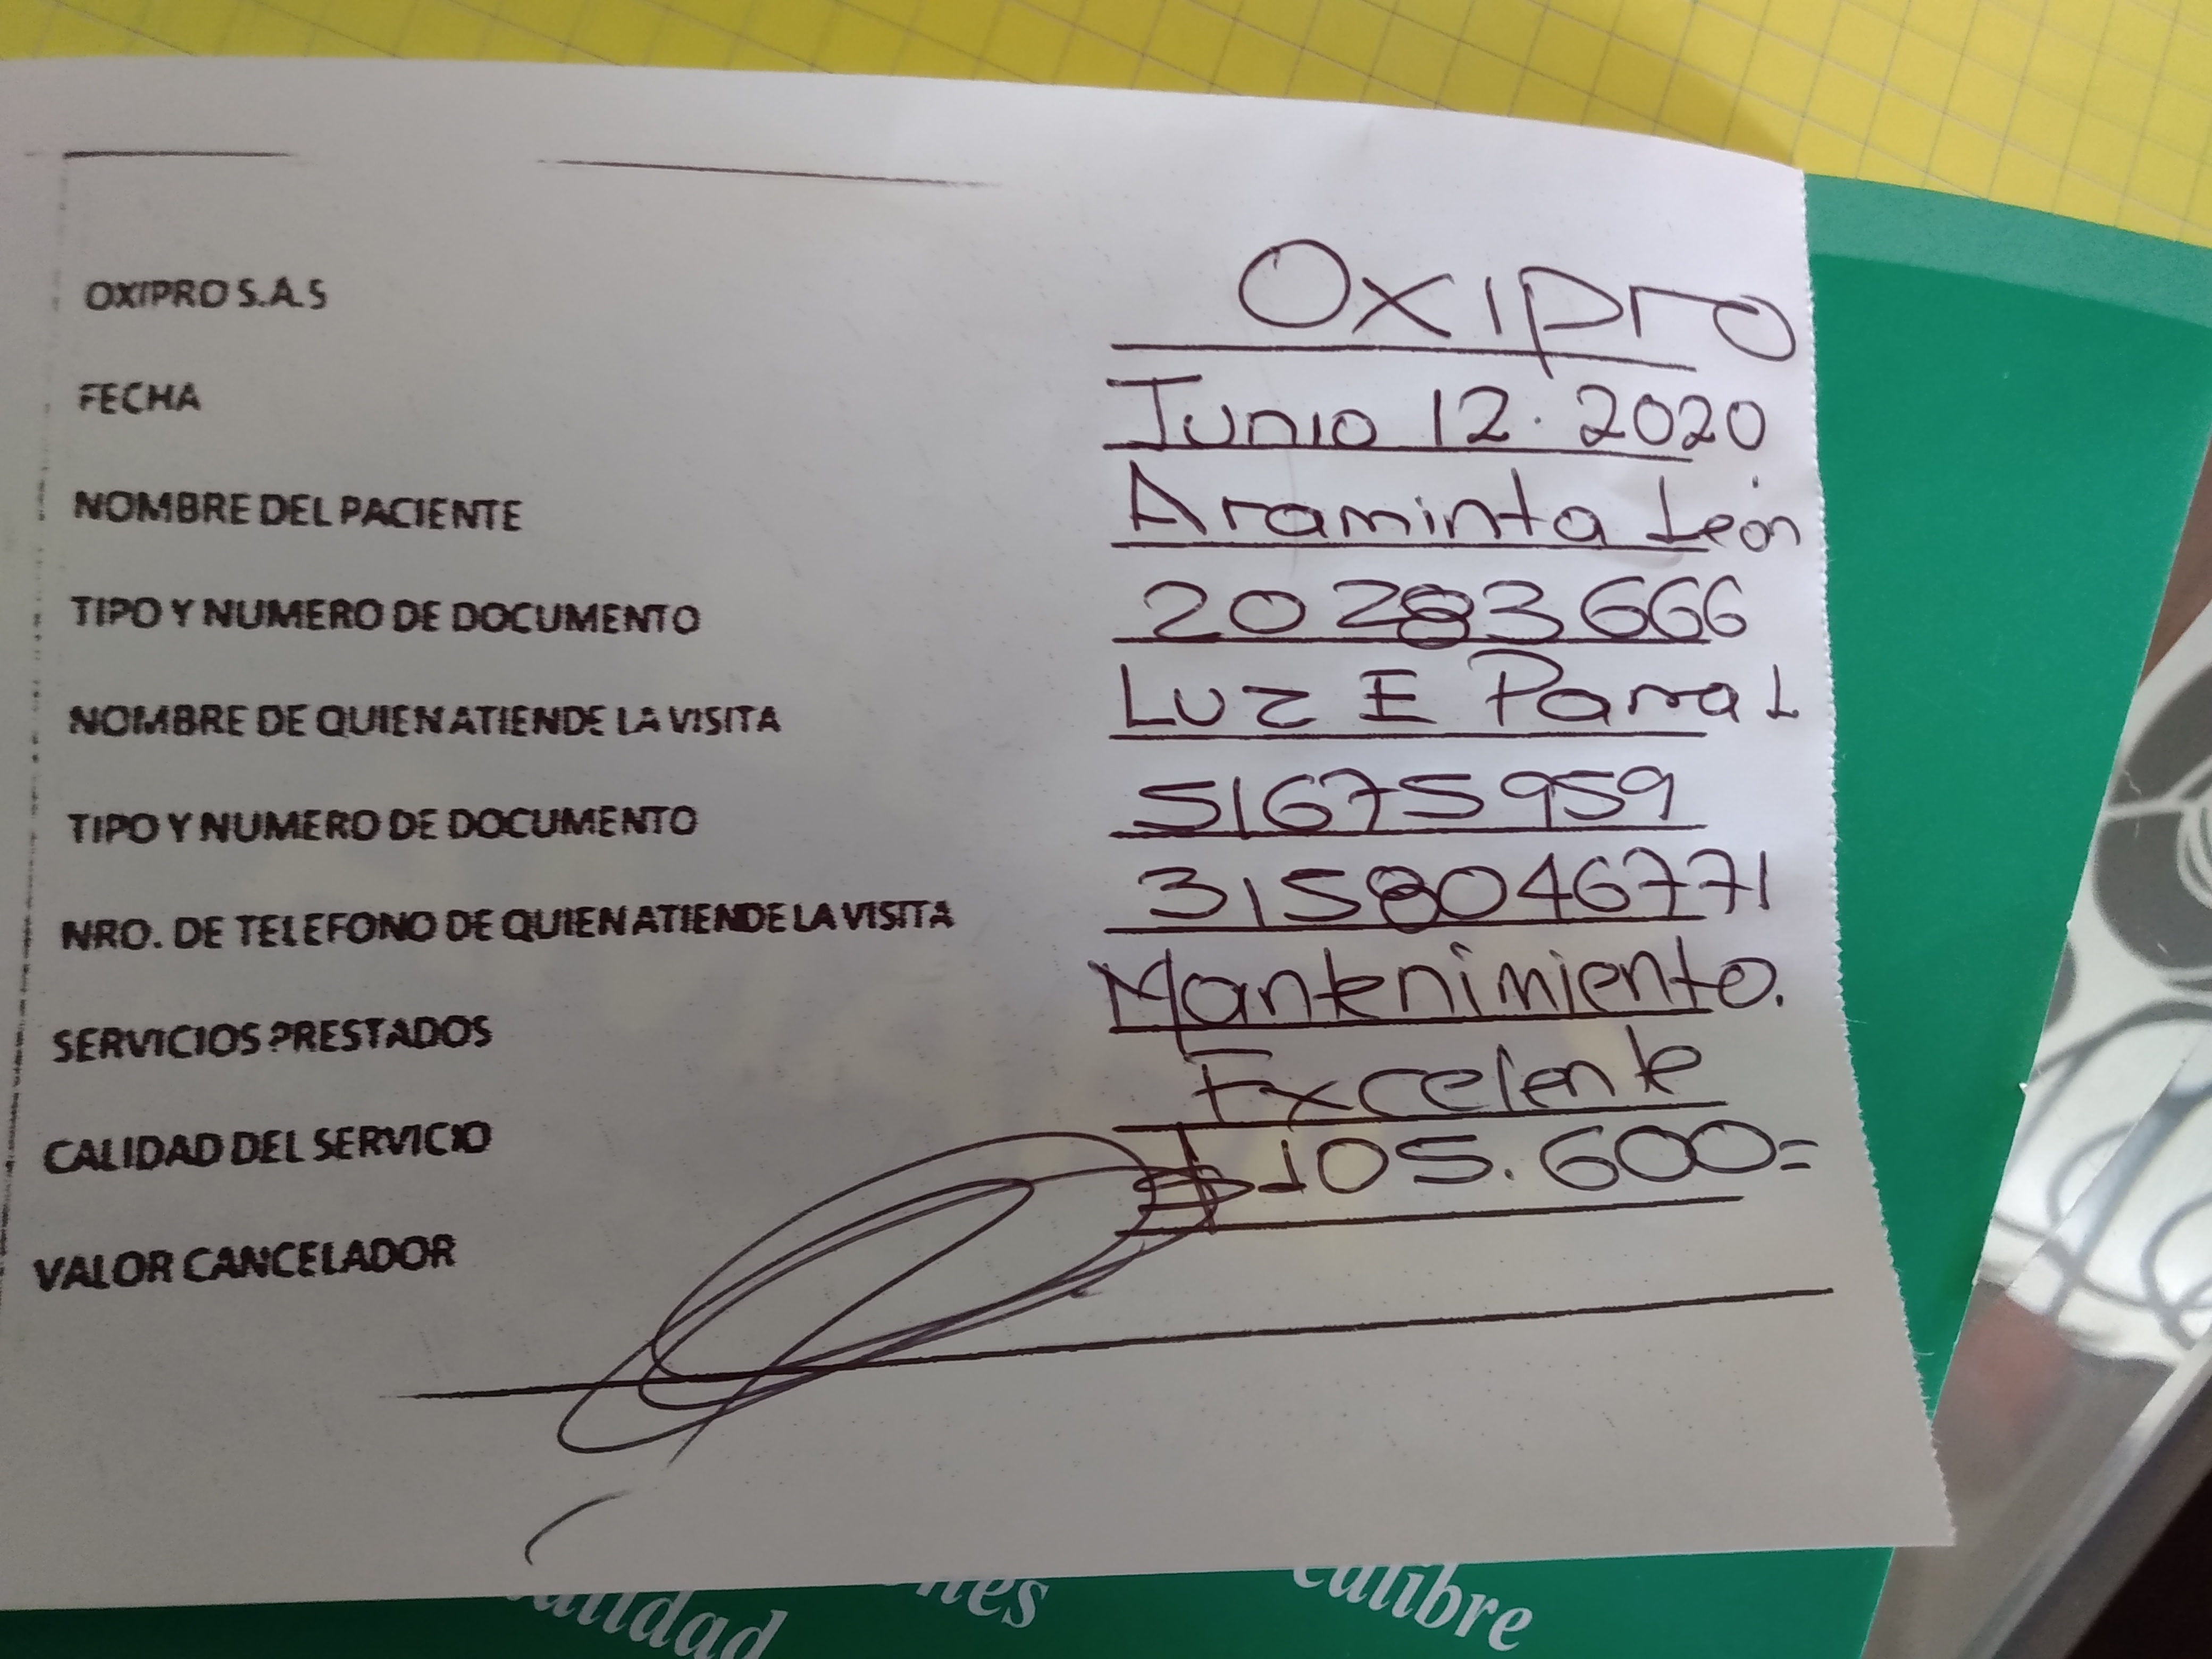 OXIPRO S.A.S Oxipro
FECHA Junio 12. 2020
NOMBRE DEL PACIENTE Araminta León
TIPO Y NUMERO DE DOCUMENTO 20283666
NOMBRE DE QUIEN ATIENDE LA VISITA Luz E Parra L
TIPO Y NUMERO DE DOCUMENTO 51675959
NRO. DE TELEFONO DE QUIEN ATIENDE LA VISITA 3158046771
SERVICIOS PRESTADOS Mantenimiento.
CALIDAD DEL SERVICIO Excelente
VALOR CANCELADOR $105.600=
calibre